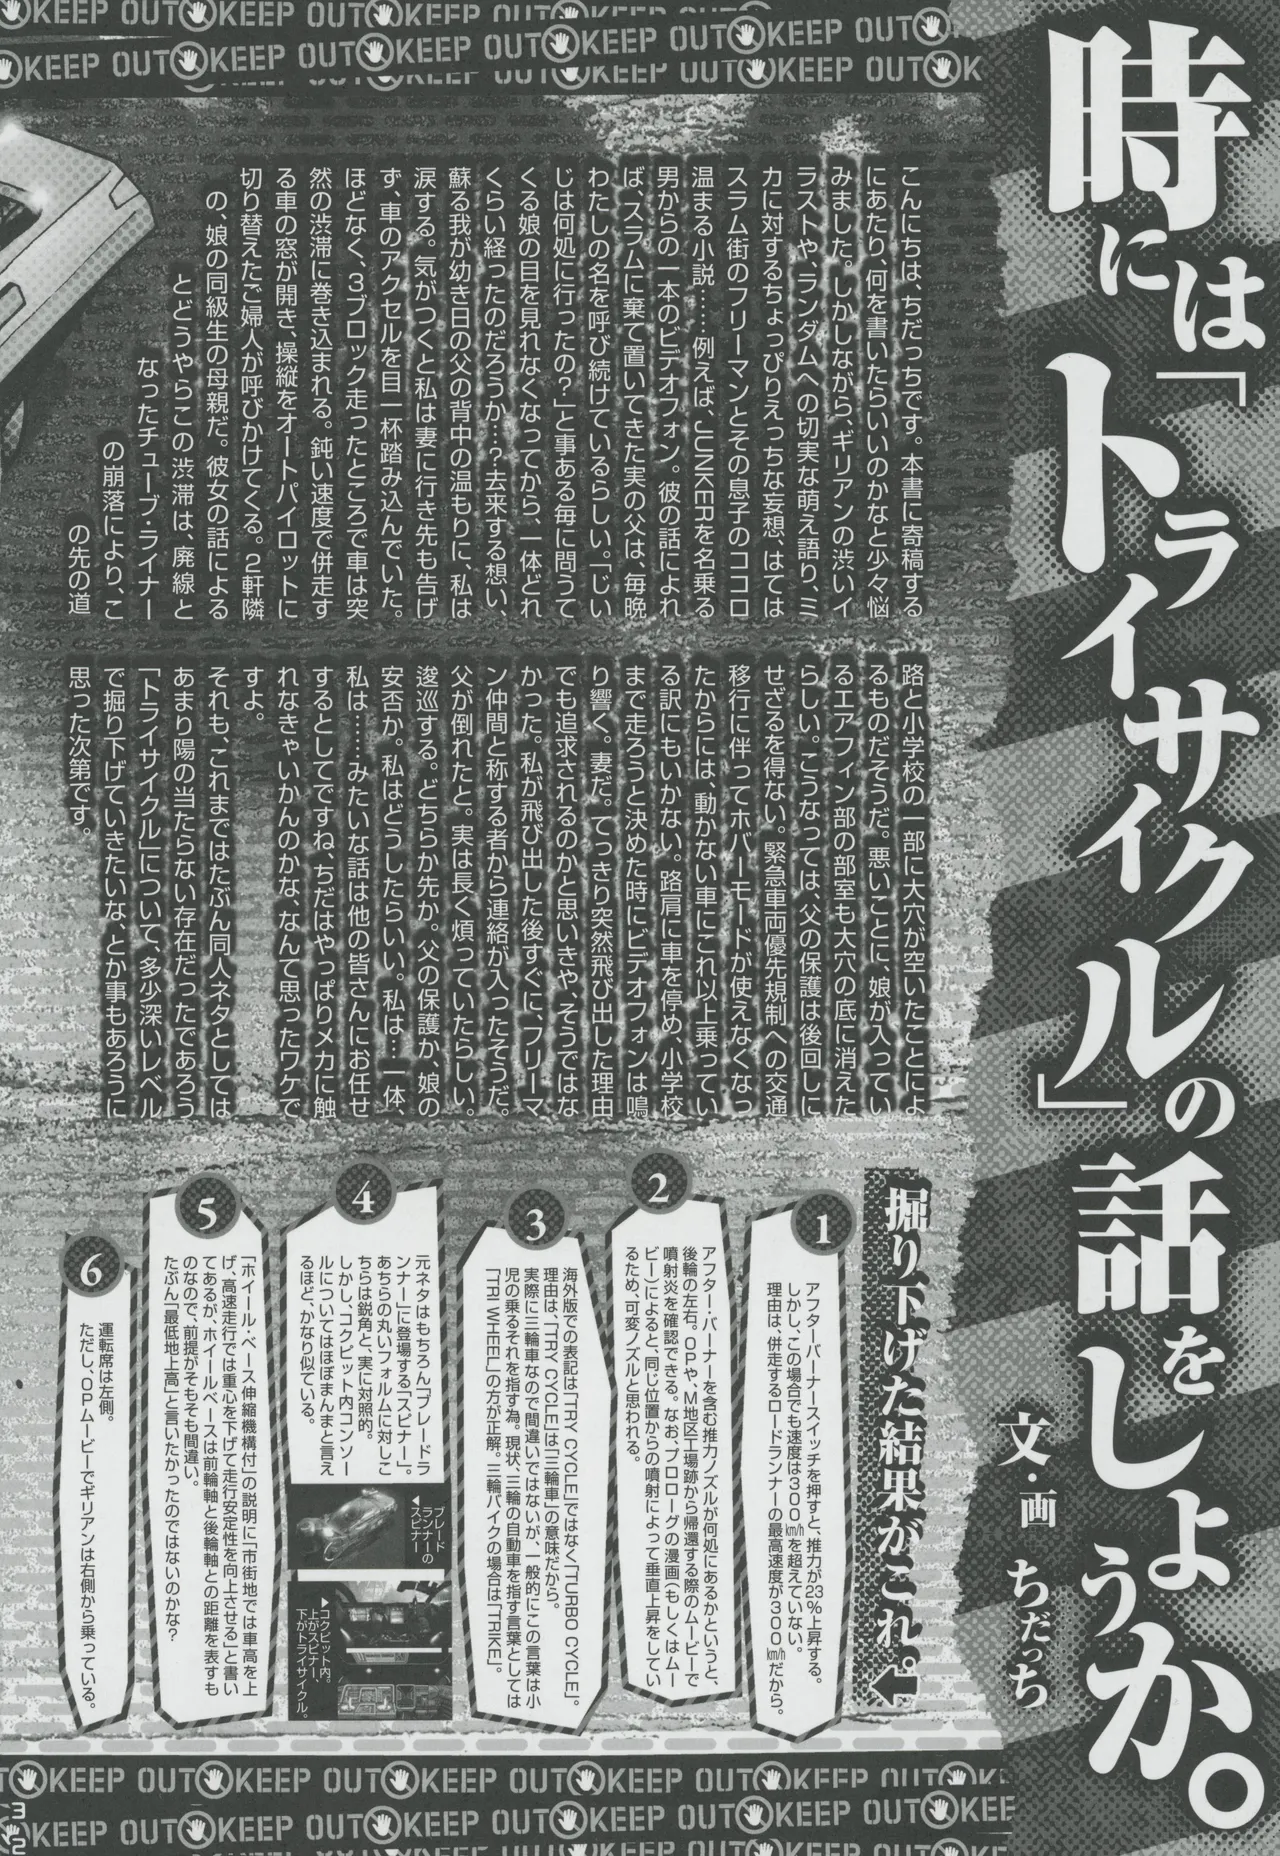 時には「トライサイクル」の話をしようか。
文・画 ちだっち
こんにちは、ちだっちです。本書に寄稿する
にあたり、何を書いたらいいのかなと少々悩
みました。しかしながら、ギリアンの渋いイ
ラストや、ランダムへの切実な萌え語り、ミ
カに対するちょっぴりえっちな妄想、はては
スラム街のフリーマンとその息子のココロ
温まる小説……例えば、JUNKERを名乗る
男からの一本のビデオフォン。彼の話によれ
ば、スラムに棄て置いてきた実の父は、毎晩
わたしの名を呼び続けているらしい。「じい
じは何処に行ったの?」と事ある毎に問うて
くる娘の目を見れなくなってから、一体どれ
くらい経ったのだろうか…?去来する想い、
蘇る我が幼き日の父の背中の温もりに、私は
涙する。気がつくと私は妻に行き先も告げ
ず、車のアクセルを目一杯踏み込んでいた。
ほどなく、3ブロック走ったところで車は突
然の渋滞に巻き込まれる。鈍い速度で併走す
る車の窓が開き、操縦をオートパイロットに
切り替えたご婦人が呼びかけてくる。2軒隣
の、娘の同級生の母親だ。彼女の話による
とどうやらこの渋滞は、廃線と
なったチューブ・ライナー
の崩落により、こ
の先の道
路と小学校の一部に大穴が空いたことによ
るものだそうだ。悪いことに、娘が入ってい
るエアフィン部の部室も大穴の底に消えた
らしい。こうなっては、父の保護は後回しに
せざるを得ない。緊急車両優先規制への交通
移行に伴ってホバーモードが使えなくなっ
たからには、動かない車にこれ以上乗ってい
る訳にもいかない。路肩に車を停め、小学校
まで走ろうと決めた時にビデオフォンは鳴
り響く。妻だ。てっきり突然飛び出した理由
でも追求されるのかと思いきや、そうではな
かった。私が飛び出した後すぐに、フリーマ
ン仲間と称する者から連絡が入ったそうだ。
父が倒れたと。実は長く煩っていたらしい。
逡巡する。どちらか先か。父の保護か、娘の
安否か。私はどうしたらいい。私は…一体、
私は……みたいな話は他の皆さんにお任せ
するとしてですね、ちだはやっぱりメカに触
れなきゃいかんのかな、なんて思ったワケで
すよ。
それも、これまではたぶん同人ネタとしては
あまり陽の当たらない存在だったであろう
「トライサイクル」について、多少深いレベル
で掘り下げていきたいな、とか事もあろうに
思った次第です。
掘り下げた結果がこれ。↓
1
アフターバーナースイッチを押すと、推力が23%上昇する。
しかし、この場合でも速度は300km/hを超えていない。
理由は、併走するロードランナーの最高速度が300km/hだから。
2
アフター・バーナーを含む推力ノズルが何処にあるかというと、
後輪の左右。OPや、M地区工場跡から帰還する際のムービーで
噴射炎を確認できる。なお、プロローグの漫画(もしくはムー
ビー)によると、同じ位置からの噴射によって垂直上昇をしてい
るため、可変ノズルと思われる。
3
海外版での表記は「TRY CYCLE」ではなく「TURBO CYCLE」。
理由は、「TRY CYCLE」は「三輪車」の意味だから。
実際に三輪車なので間違いではないが、一般的にこの言葉は小
児の乗るそれを指す為。現状、三輪の自動車を指す言葉としては
「TRI WHEEL」の方が正解。三輪バイクの場合は「TRIKE」。
4
元ネタはもちろん「ブレードラ
ンナー」に登場する「スピナー」。
あちらの丸いフォルムに対しこ
ちらは鋭角と、実に対照的。
しかし、コクピット内コンソー
ルについてはほぼまんまと言え
るほど、かなり似ている。
◀ブレード
ランナーの
スピナー
▶コクピット内。
上がスピナー、
下がトライサイクル。
5
「ホイール・ベース伸縮機構付」の説明に「市街地では車高を上
げ、高速走行では重心を下げて走行安定性を向上させる」と書い
てあるが、ホイールベースは前輪軸と後輪軸との距離を表すも
のなので、前提がそもそも間違い。
たぶん「最低地上高」と言いたかったのではないのかな?
6
運転席は左側。
ただし、OPムービーでギリアンは右側から乗っている。
KEEP OUT KEEP OUT KEEP OUT KEEP OUT
KEEP OUT KEEP OUT KEEP OUT KEEP OUT